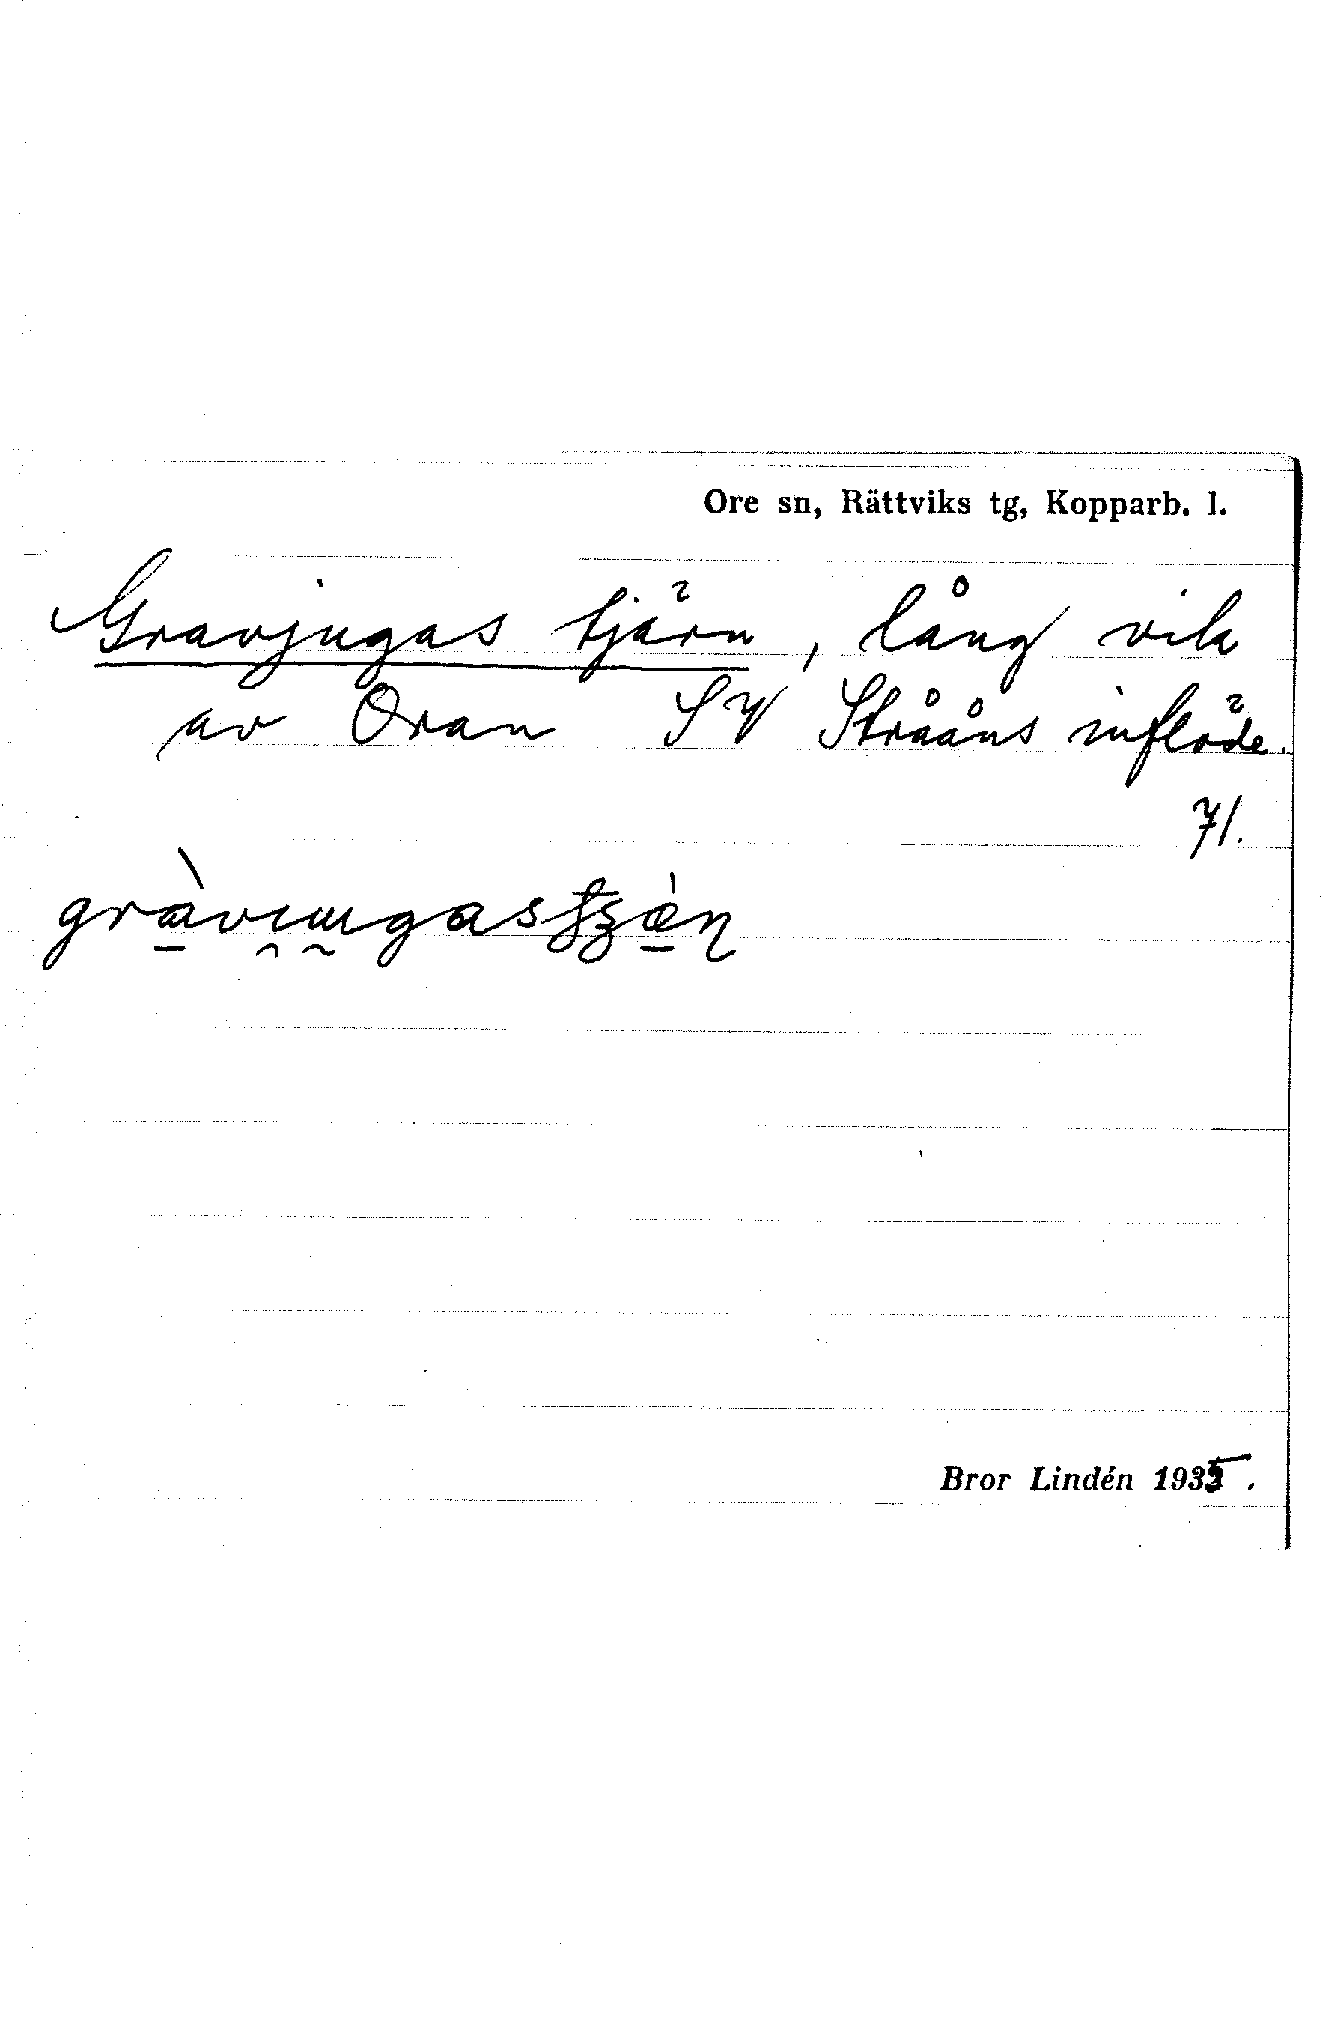 Ore sn, Rättviks tg, Kopparb. l.
Gravjugas tjärn, lång vik
av Oran SV Strååns inflöde.
71.
Bror Lindén 1935.